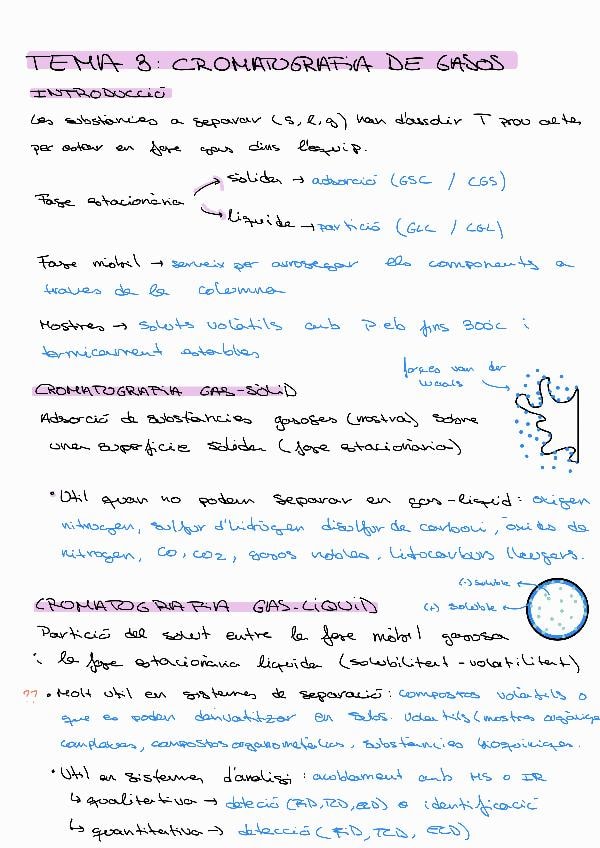 TEMA 8: CROMATOGRAFIA DE GASOS
INTRODUCCIÓ
Les substàncies a separar (s, l, g) han d'assolir T prou altes
per estar en fase gas dins l'equip.
sòlida → adsorció (GSC / CGS)
Fase estacionària
líquida → partició (GLC / CGL)
Fase mòbil → serveix per arrossegar els components a
través de la columna
Mostres → soluts volàtils amb P eb fins 300ºC i
tèrmicament estables
forces van der
waals
CROMATOGRAFIA GAS-SÒLID
Adsorció de substàncies gasoses (mostra) sobre
una superfície sòlida (fase estacionària)
• Útil quan no podem separar en gas-líquid: oxigen
nitrogen, sulfur d'hidrògen disulfur de carboni, òxids de
nitrogen, CO, CO2, gasos nobles, hidrocarburs lleugers.
(-) soluble
CROMATOGRAFIA GAS-LÍQUID
(+) soluble
Partició del solut entre la fase mòbil gasosa
i la fase estacionària líquida (solubilitat - volatilitat)
?? • Molt útil en sistemes de separació: compostos volàtils o
que es poden derivatitzar en subs. volàtils (mostres orgàniques
complexes, compostos organometàl·lics, substàncies bioquímiques.
• Útil en sistemes d'anàlisi: acoblament amb MS o IR
↳ qualitativa → detecció (FID, TCD, ECD) o identificació
↳ quantitativa → detecció (FID, TCD, ECD)